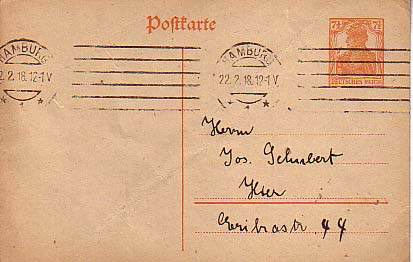 Postkarte
HAMBURG
22.2.18.12-1V
*1*
HAMBURG
22.2.18.12-1V
*1*
7½ 7½
DEUTSCHES REICH
Herrn
Jos. Schubert
Hier
44